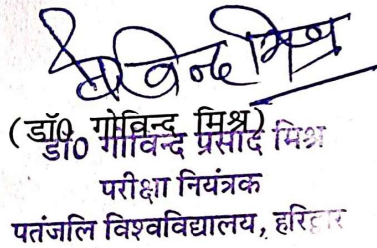 गोविन्द मिश्र
(डॉ0 गोविन्द मिश्र)
डा0 गोविन्द प्रसाद मिश्रा
परीक्षा नियंत्रक
पतंजलि विश्वविद्यालय, हरिद्वार